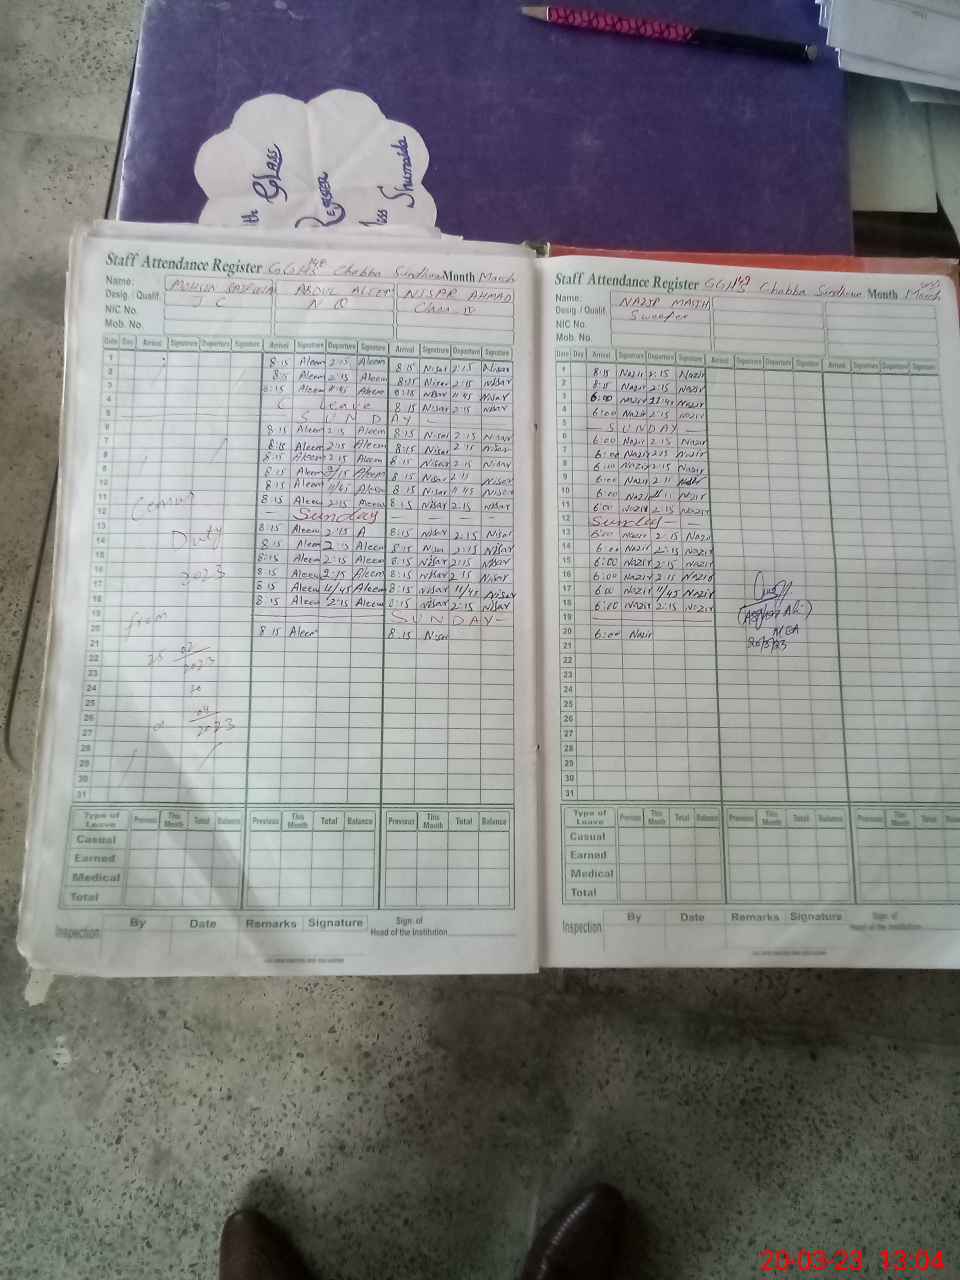 Glass
Register
Miss Shumaila
Staff Attendance Register GGHS Chabba Sindhwan Month March
Name: ABDUL ALEEM NISAR AHMAD
Desig. / Qualif. J C N Q
NIC No.
Mob. No.
Date Day Arrival Signature Departure Signature Arrival Signature Departure Signature Arrival Signature Departure Signature
1 8:15 Aleem 2:15 Aleem 8:15 Nisar 2:15 Nisar
2 8:15 Aleem 2:15 Aleem 8:15 Nisar 2:15 Nisar
3 8:15 Aleem 11:45 Aleem 8:15 Nisar 11:45 Nisar
4 C Leave 8:15 Nisar 2:15 Nisar
5 SUNDAY
6 8:15 Aleem 2:15 Aleem 8:15 Nisar 2:15 Nisar
7 8:15 Aleem 2:15 Aleem 8:15 Nisar 2:15 Nisar
8 8:15 Aleem 2:15 Aleem 8:15 Nisar 2:15 Nisar
9 8:15 Aleem 2:15 Aleem 8:15 Nisar 2:11 Nisar
10 8:15 Aleem 11:45 Aleem 8:15 Nisar 11:45 Nisar
11 8:15 Aleem 2:15 Aleem 8:15 Nisar 2:15 Nisar
12 — Sunday — — — —
13 8:15 Aleem 2:15 A 8:15 Nisar 2:15 Nisar
14 8:15 Aleem 2:15 Aleem 8:15 Nisar 2:15 Nisar
15 8:15 Aleem 2:15 Aleem 8:15 Nisar 2:15 Nisar
16 8:15 Aleem 2:15 Aleem 8:15 Nisar 2:15 Nisar
17 8:15 Aleem 11/45 Aleem 8:15 Nisar 11/45 Nisar
18 8:15 Aleem 2:15 Aleem 8:15 Nisar 2:15 Nisar
19 SUNDAY—
20 8:15 Aleem 8:15 Nisar
21
22
23
24
25
26
27
28
29
30
31
Duty
2023
from
25 02/2023
to
01 04/2023
Type of Leave Previous This Month Total Balance Previous This Month Total Balance Previous This Month Total Balance
Casual
Earned
Medical
Total
Inspection By Date Remarks Signature Sign. of Head of the Institution
Staff Attendance Register GGHS Chabba Sindhwan Month March
Name: NAZIR MASIH
Desig. / Qualif. Sweeper
NIC No.
Mob. No.
Date Day Arrival Signature Departure Signature Arrival Signature Departure Signature Arrival Signature Departure Signature
1 8:15 Nazir 2:15 Nazir
2 8:15 Nazir 2:15 Nazir
3 6:00 Nazir 11:45 Nazir
4 6:00 Nazir 2:15 Nazir
5 — SUNDAY —
6 6:00 Nazir 2:15 Nazir
7 6:00 Nazir 2:15 Nazir
8 6:00 Nazir 2:15 Nazir
9 6:00 Nazir 2:11 Nazir
10 6:00 Nazir Nazir
11 6:00 Nazir 2:15 Nazir
12 Sunday — —
13 6:00 Nazir 2:15 Nazir
14 6:00 Nazir 2:15 Nazir
15 6:00 Nazir 2:15 Nazir
16 6:00 Nazir 2:15 Nazir
17 6:00 Nazir 11/45 Nazir
18 6:00 Nazir 2:15 Nazir
19
20 6:00 Nazir
21
22
23
24
25
26
27
28
29
30
31
(Asghar Ali)
MEA
20/3/23
Type of Leave Previous This Month Total Balance Previous This Month Total Balance Previous This Month Total
Casual
Earned
Medical
Total
Inspection By Date Remarks Signature Sign. of Head of the Institution
20-03-23 13:04